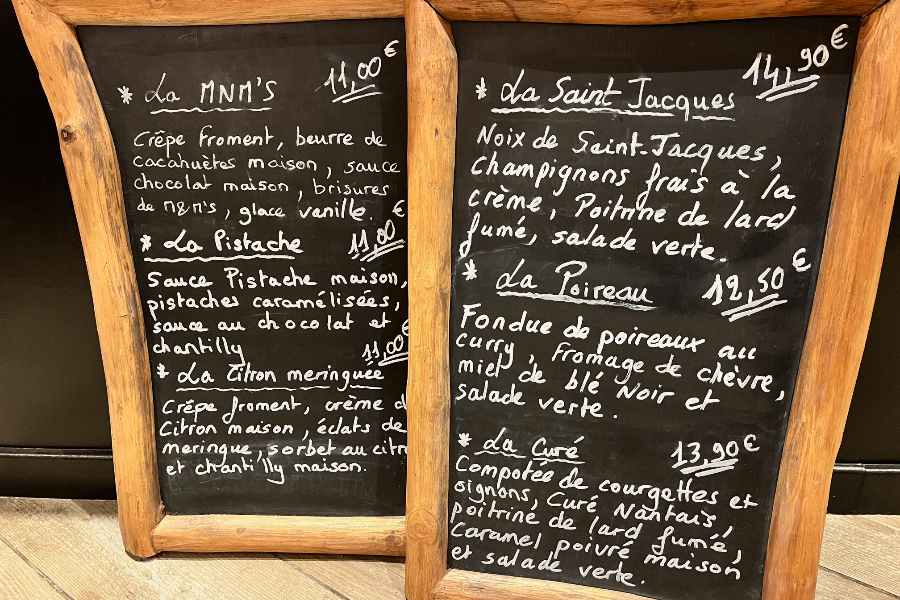 * La MNM'S 11,00€
Crêpe froment, beurre de
cacahuètes maison, sauce
chocolat maison, brisures
de M&M's, glace vanille.
* La Pistache 11,00€
Sauce Pistache maison,
pistaches caramélisées,
sauce au chocolat et
chantilly
* La Citron meringuée 11,00€
Crêpe froment, crème d
Citron maison, éclats de
meringue, sorbet au citr
et chantilly maison.
* La Saint Jacques 14,90€
Noix de Saint-Jacques,
Champignons frais à la
crème, Poitrine de lard
fumé, salade verte.
* La Poireau 12,50€
Fondue de poireaux au
curry, fromage de chèvre,
miel de blé Noir et
salade verte.
* La Curé 13,90€
Compotée de courgettes et
oignons, Curé Nantais,
poitrine de lard fumé,
Caramel poivré maison
et salade verte.